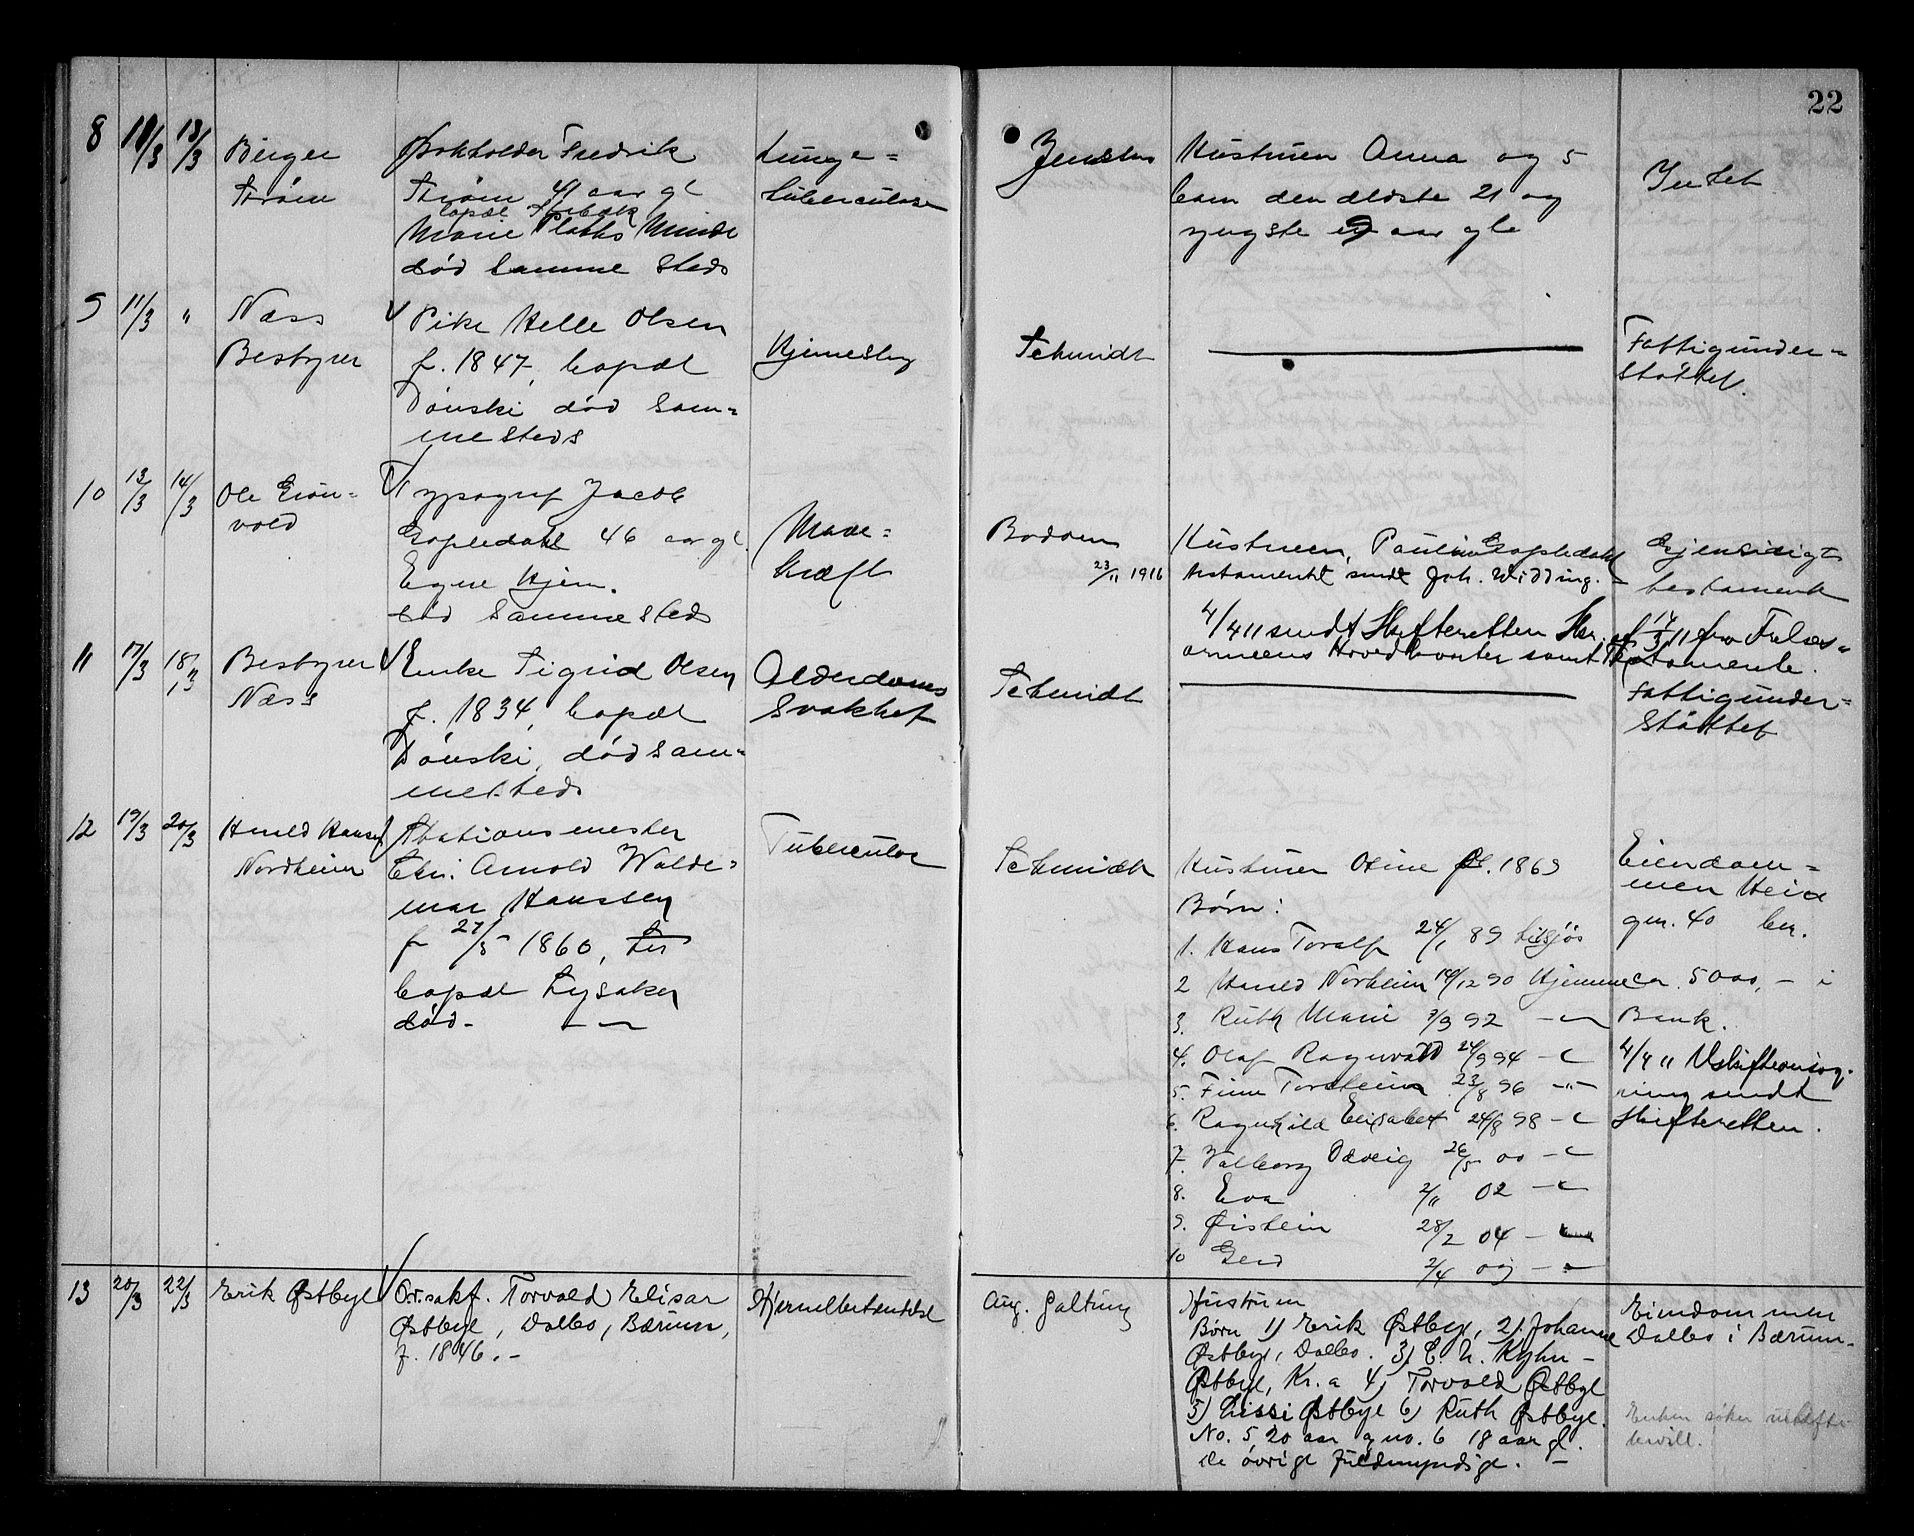 22
8 11/3 13/3 Birger
Strøm
Bokholder Fredrik
Strøm 41 aar gl
bopæl
Marie Plahts Minde
død samme steds
Lunge=
tuberculose
Jenshus
Hustruen Anna og 5
barn den ældste 21 og
yngste 9 aar gle
Intet
9 11/3 " Næss
Bestyrer
Pike Helle Olsen
f. 1847, bopæl
Dønski død sam=
mesteds
Hjerneslag
Schmidt
Fattigunder=
støttet.
10 13/3 14/3 Ole Grøn=
vold
Typograf Jacob
Gopledahl 46 aar gl.
Egne Hjem.
død sammesteds
Mave=
kræft
Bodom
23/11 1916
Hustruen, Pauline Gopledahl
testamentet sendt Joh. Widding.
4/4 11 sendt Skifteretten Skr. af 17/3 11 fra Frelses=
armeens Hovedkvarter samt Testamente.
Gjensidigt
testamente
11 17/3 18/3 Bestyrer
Næss
Enke Sigrid Olsen
f. 1834, bopæl
Dønski, død sam=
mesteds
Alderdoms
Svakhet
Schmidt
Fattigunder=
støttet
12 19/3 20/3 Harald Hansen
Nordheim
Stationsmester
Chr. Arnold Walde=
mar Hanssen
f 27/5 1860,
bopæl Lysaker
død - — —
Tuberculose
Schmidt
Hustruen Oline f. 1863
Børn:
1. Hans Toralf 24/1 89 tilsjøs
2 Harald Norheim 14/12 90 Hjemme
3. Ruth Marie 7/9 92 — —
4. Olaf Ragnvald 24/9 94 — —
5. Finn Torstein 23/8 96 — " —
6. Ragnhild Elisabet 24/8 98 — —
7. Valborg Solveig 26/5 00 — —
8. Eva 2/11 02 — —
9. Øistein 28/2 04 — —
10 Gerd 2/4 09 — —
Eiendom=
men Heia
gn. 40 bn.
ca 5000,- i
Bank.
4/4 11 Uskifteansøg.
ning sendt
Skifteretten.
13 20/3 22/3 Erik Østbye
O.r.sakf. Torvald Elisar
Østbye, Dalbo, Bærum,
f. 1846.-
Hjernebetændelse
Aug. Galtung
Hustruen
Børn 1) Erik Østbye, 2) Johanne
Østbye, Dalbo. 3) C. N. Kyhn-
Østbye, Kr.a 4) Torvald Østbye
5) Lissi Østbye 6) Ruth Østbye.
No. 5 20 aar og no. 6 18 aar gl.
De øvrige fuldmyndige. -
Eiendommen
Dalbo i Bærum.
Enken søker uskifte
bevill.